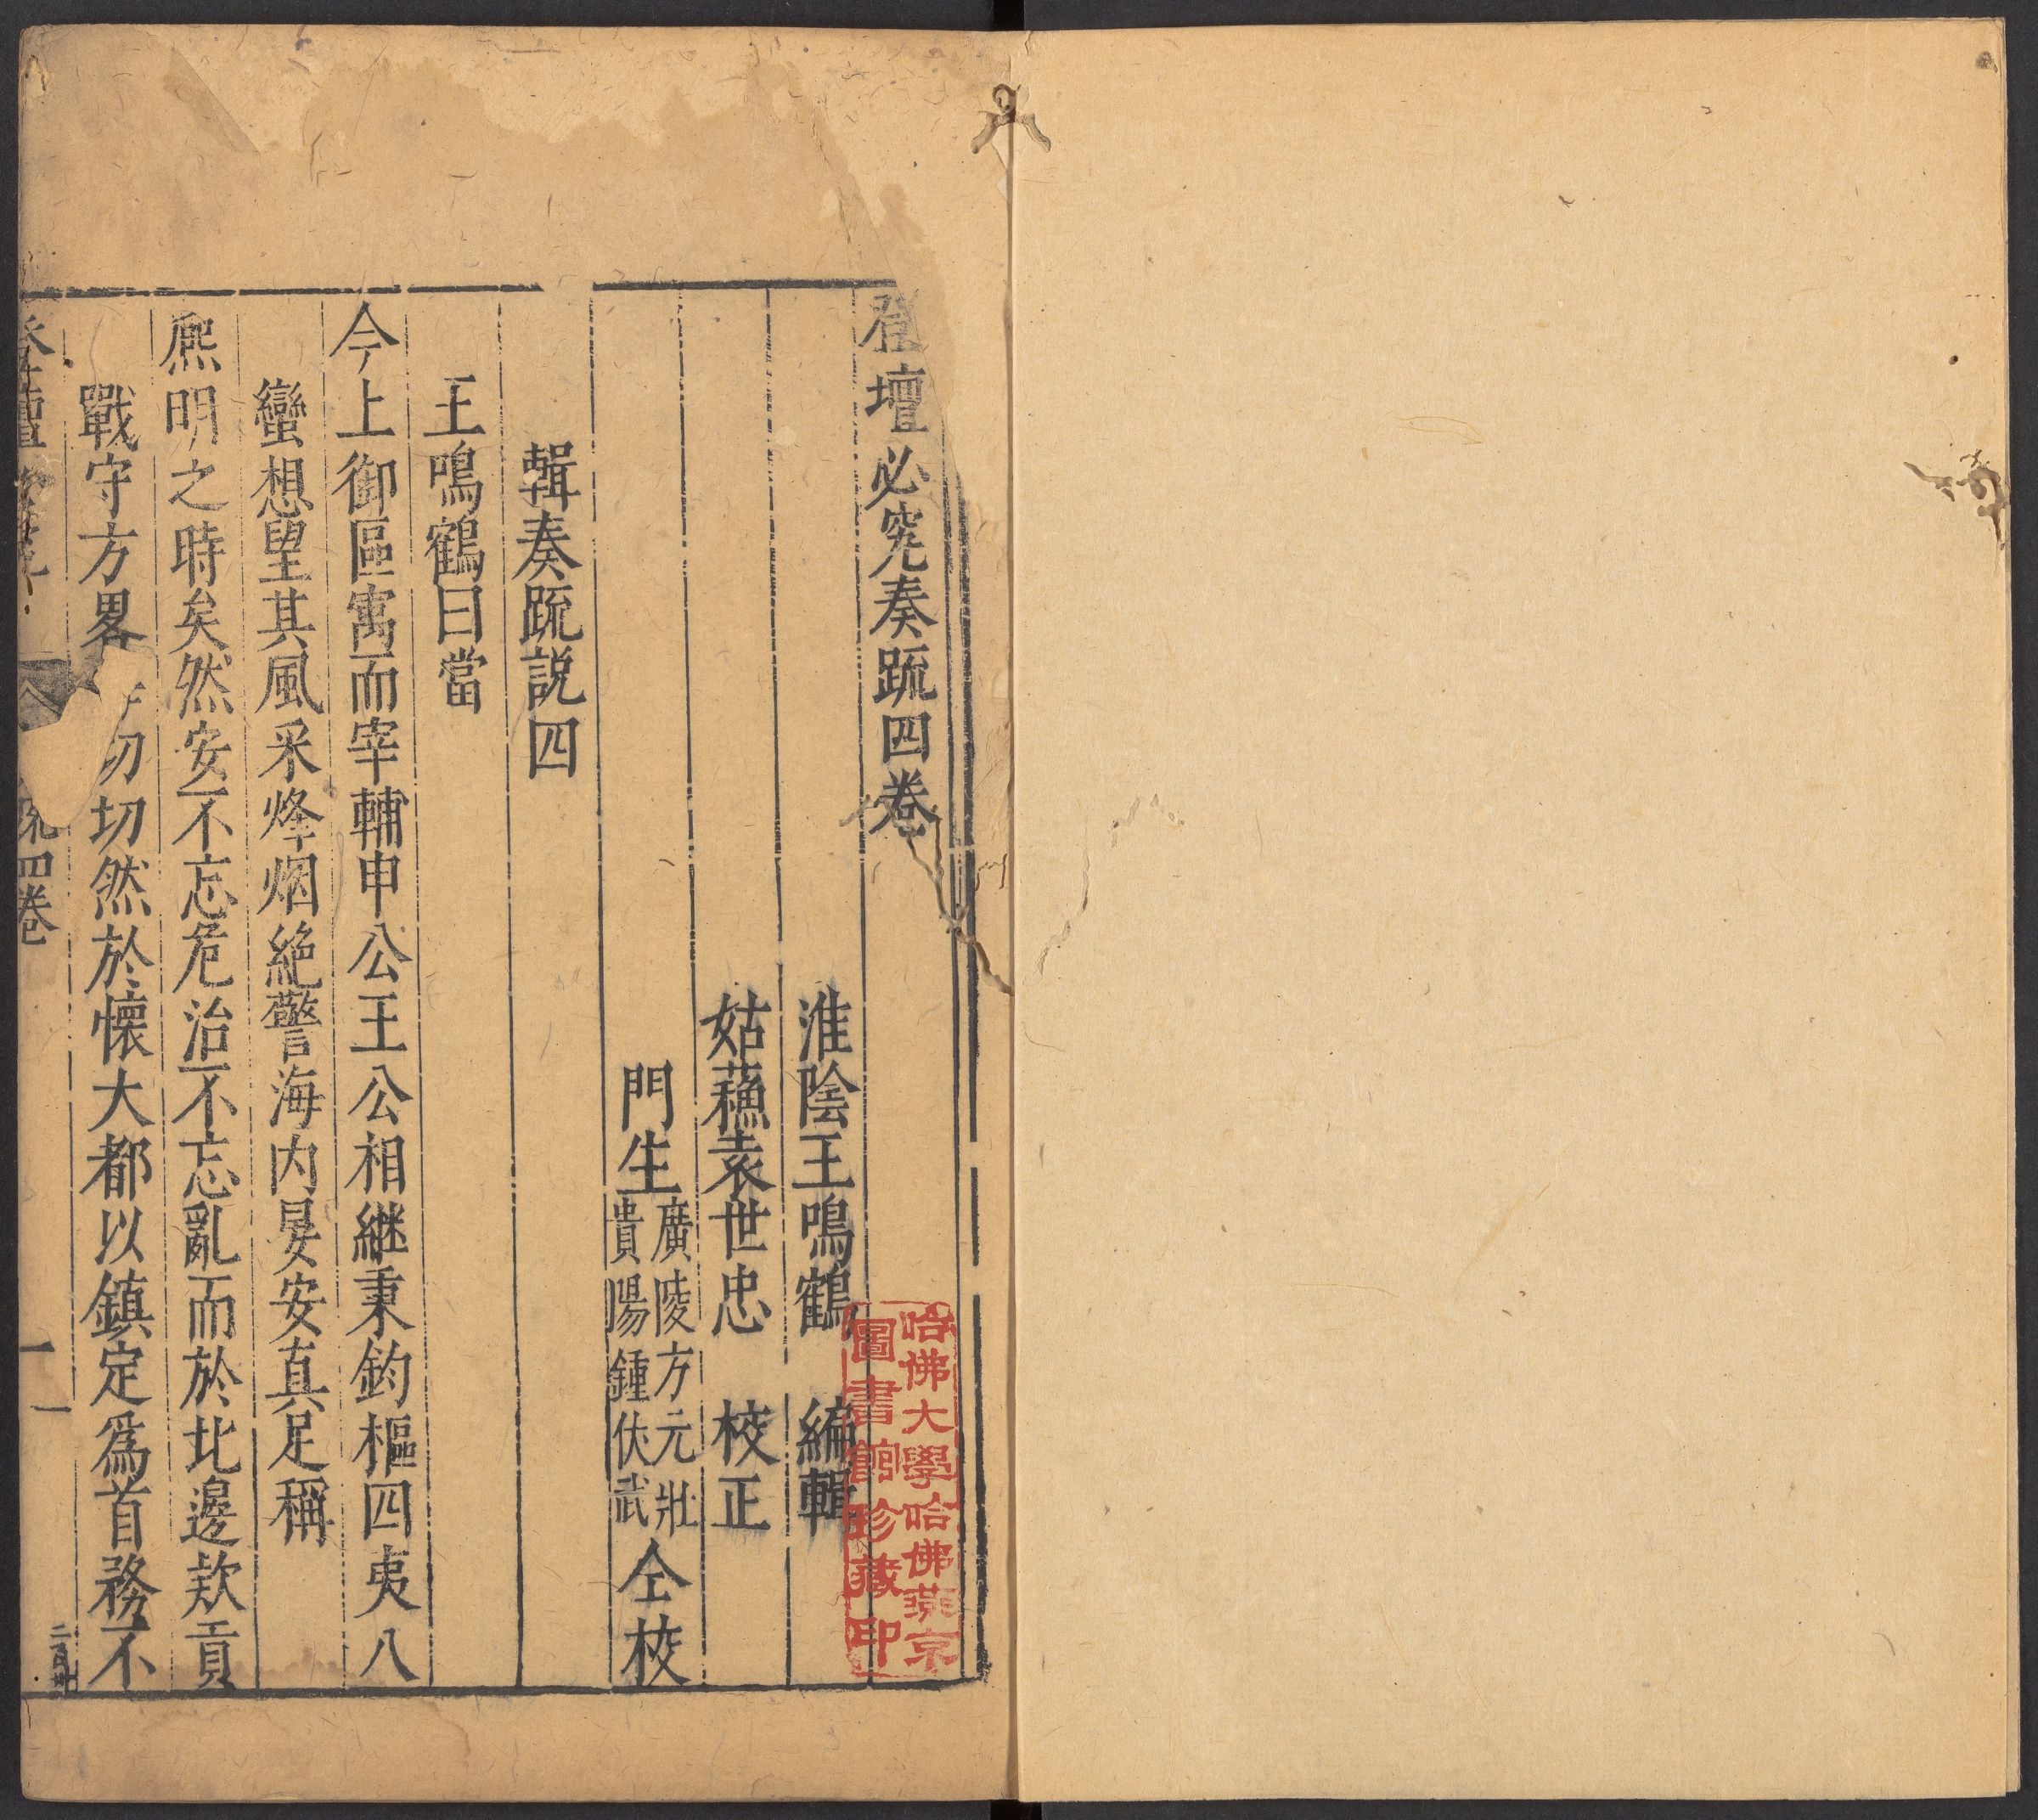 登壇必究奏疏四卷
淮陰王鳴鶴 編輯
姑蘓袁世忠 校正
門生廣陵方元壯貴陽鍾伏武仝校
輯奏疏説四
王鳴鶴曰當
今上御區寓而宰輔申公王公相継秉鈞樞四夷八
蠻想望其風采烽烟絶警海内晏安真足稱
熈明之時矣然安不忘危治不忘亂而於北邊欵貢
戰守方畧切切然於懐大都以鎮定爲首務不
哈佛大學哈佛燕京
圖書館珍藏印
四卷
一